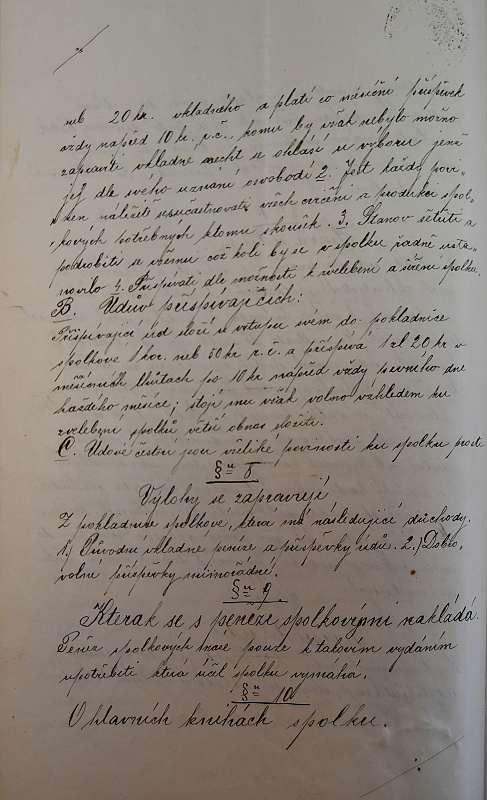 neb 20 kr. vkladného a platí co měsíční příspěvek
vždy napřed 10 kr. r.č., komu by však nebylo možno
zapraviti vkladné nechť se ohlásí u výboru jenž
jej dle svého uznání osvobodí 2. Jest každý povi„
nen náležitě súčastňovati všech cvičení a produkcí spol„
kových potřebných ktomu zkoušek. 3. Stanov šetřiti a
podrobiti se všemu což koli by se v spolku řádně usta„
novilo 4. Přispívati dle možnosti k zvelebení a šíření spolku.
B. Údův přispívajících:
Přispívající úd složí u vstupu svém do pokladnice
spolkové 1 kor. neb 50 kr r.č. a přispívá 1 zl 20 kr v
měsíčních lhůtách po 10 kr napřed vždy prvního dne
každého měsíce; stojí mu však volno vzhledem ku
zvelebení spolků větší obnos složiti.
C. Údové čestní jsou všeliké povinnosti ku spolku prosti
§ 8
Výlohy se zapravují
Z pokladnice spolkové, která má následující důchody.
1.) Původní vkladné peníze a příspěvky údů. 2.) Dobro„
volné příspěvky mimořádné.
§ 9
Kterak se s penězi spolkovými nakládá.
Peněz spolkových může pouze k takovím vydáním
upotřebiti která účel spolku vymahá.
§ 10
O hlavních knihách spolku.